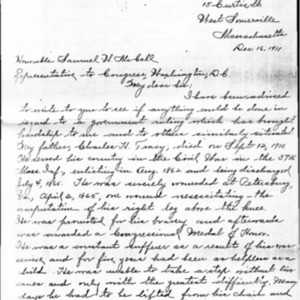 15 Curtis St
West Somerville
Massachusetts
Dec 15, 1911
Honorable Samuel W. McCall
Representative to Congress, Washington, D.C.
My dear Sir:
I have been advised
to write to you to see if anything could be done in
regard to a government ruling which has brought
hardship to me and to others similarly situated.
My father, Charles H. Tracy, died on Sept 12, 1911.
He served his country in the Civil War in the 37th
Mass. Inf., enlisting in Aug. 1862 and being discharged
July 4, 1865. He was severely wounded at Petersburg,
Va., April 2, 1865, one wound necessitating the
amputation of his right leg above the knee.
He was promoted for his bravery and afterwards
was awarded a Congressional Medal of Honor.
He was a constant sufferer as a result of his war
service, and for five years had been as helpless as a
child. He was unable to take a step without two
canes and only with the greatest difficulty. Many
days he had to be lifted from his chair and